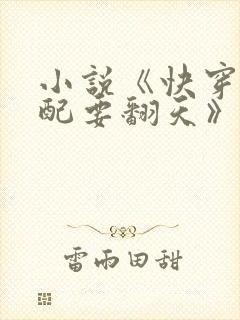 小说《快穿
配要翻天》
雷雨田甜